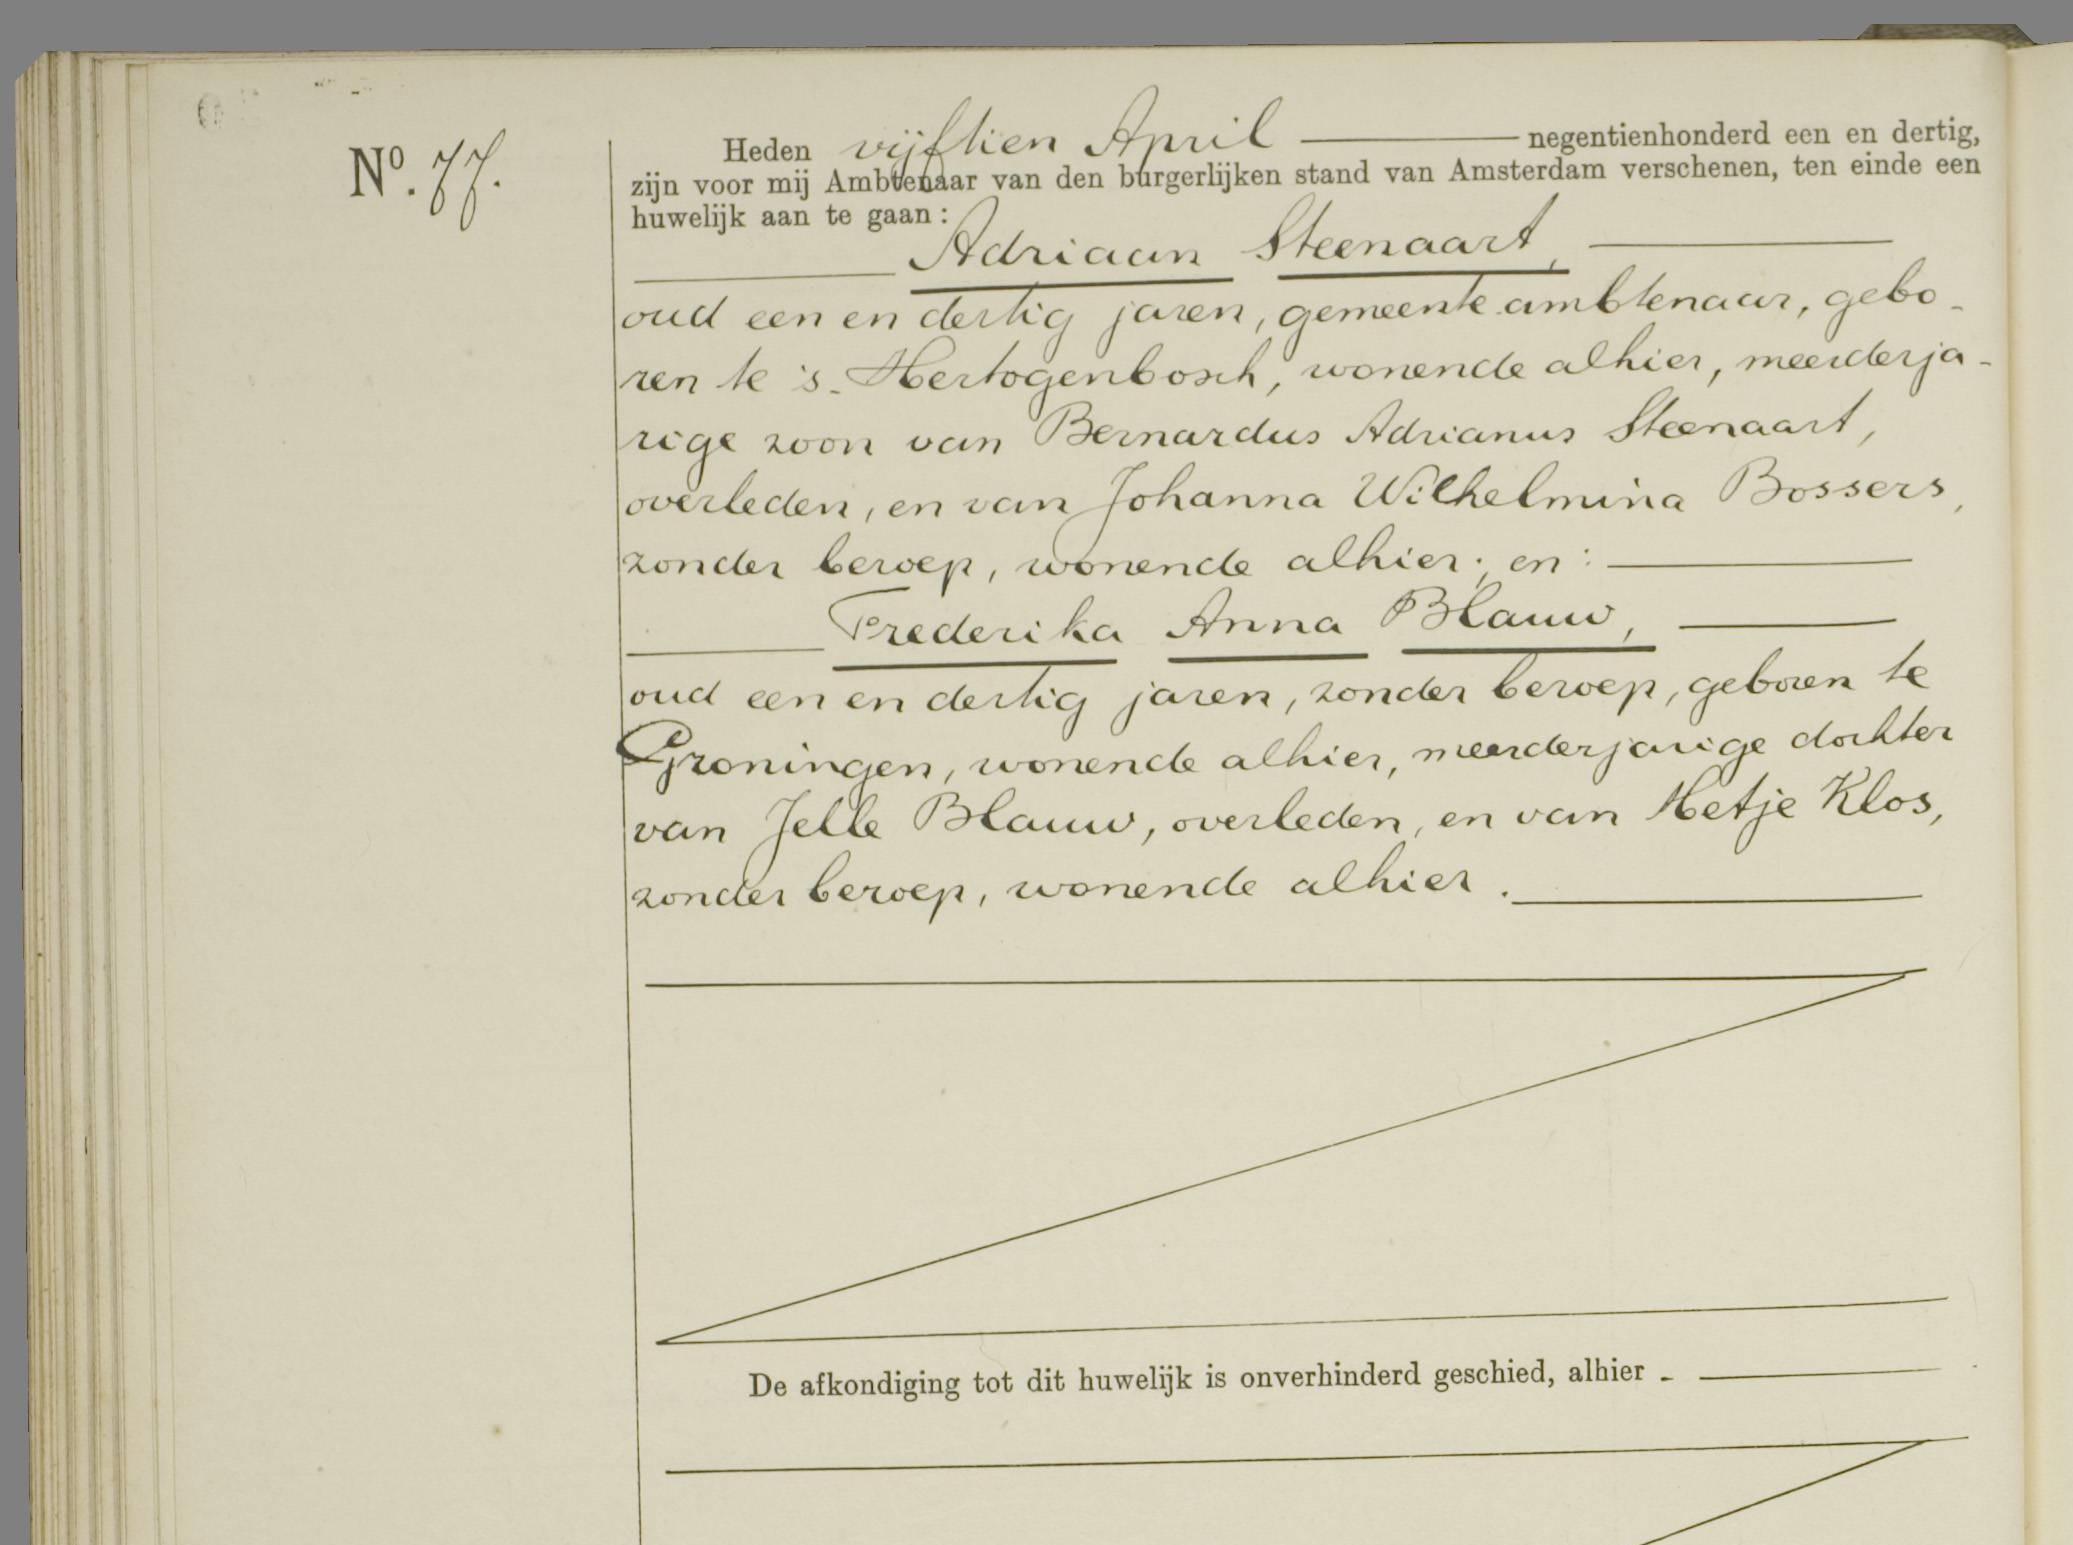 Nº. 77.
Heden vijftien April negentienhonderd een en dertig,
zijn voor mij Ambtenaar van den burgerlijken stand van Amsterdam verschenen, ten einde een
huwelijk aan te gaan:
Adriaan Steenaart,
oud een en dertig jaren, gemeente-ambtenaar, gebo-
ren te 's-Hertogenbosch, wonende alhier, meerderja-
rige zoon van Bernardus Adrianus Steenaart,
overleden, en van Johanna Wilhelmina Bossers,
zonder beroep, wonende alhier; en:
Frederika Anna Blauw,
oud een en dertig jaren, zonder beroep, geboren te
Groningen, wonende alhier, meerderjarige dochter
van Jelle Blauw, overleden, en van Hetje Klos,
zonder beroep, wonende alhier.
De afkondiging tot dit huwelijk is onverhinderd geschied, alhier -